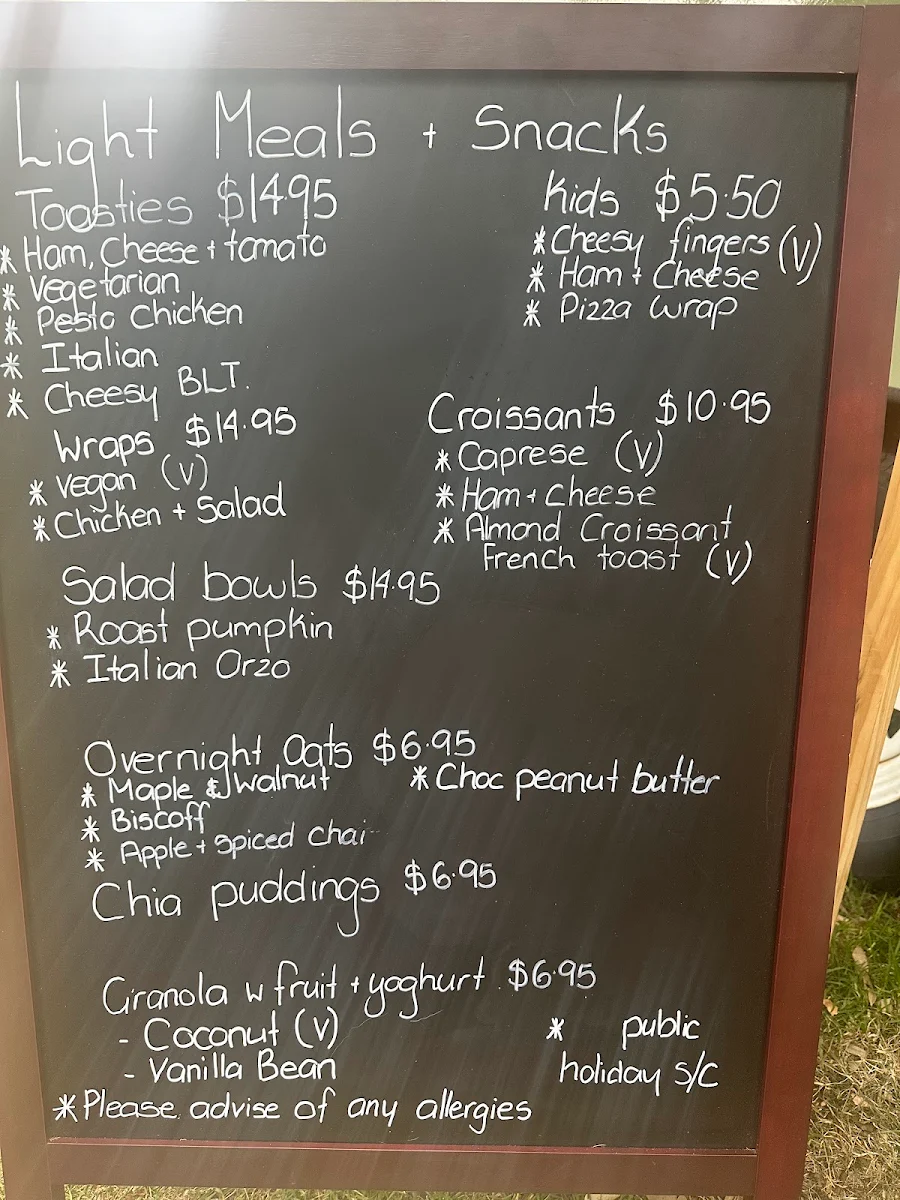 Light Meals + Snacks
Toasties $14.95
* Ham, Cheese + tomato
* Vegetarian
* Pesto Chicken
* Italian
* Cheesy BLT.
Wraps $14.95
* Vegan (V)
* Chicken + Salad
Kids $5.50
* Cheesy fingers (V)
* Ham + Cheese
* Pizza wrap
Croissants $10.95
* Caprese (V)
* Ham + Cheese
* Almond Croissant
French toast (V)
Salad bowls $14.95
* Roast pumpkin
* Italian Orzo
Overnight Oats $6.95
* Maple & walnut * Choc peanut butter
* Biscoff
* Apple + spiced chai
Chia puddings $6.95
Granola w fruit + yoghurt $6.95
- Coconut (V)
- Vanilla Bean
* public
holiday s/c
* Please advise of any allergies